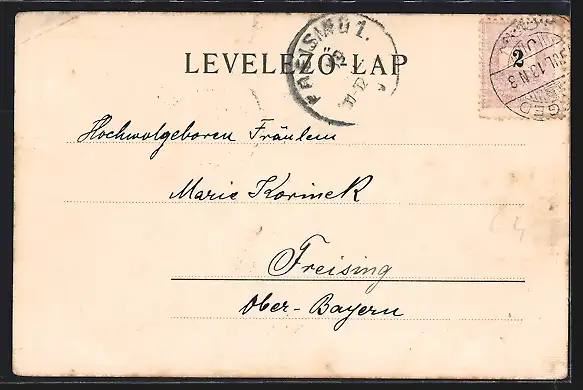 LEVELEZŐ-LAP
FREISING 1.
2
Hochwolgeboren Fräulein
Marie Korinek
Freising
Ober-Bayern